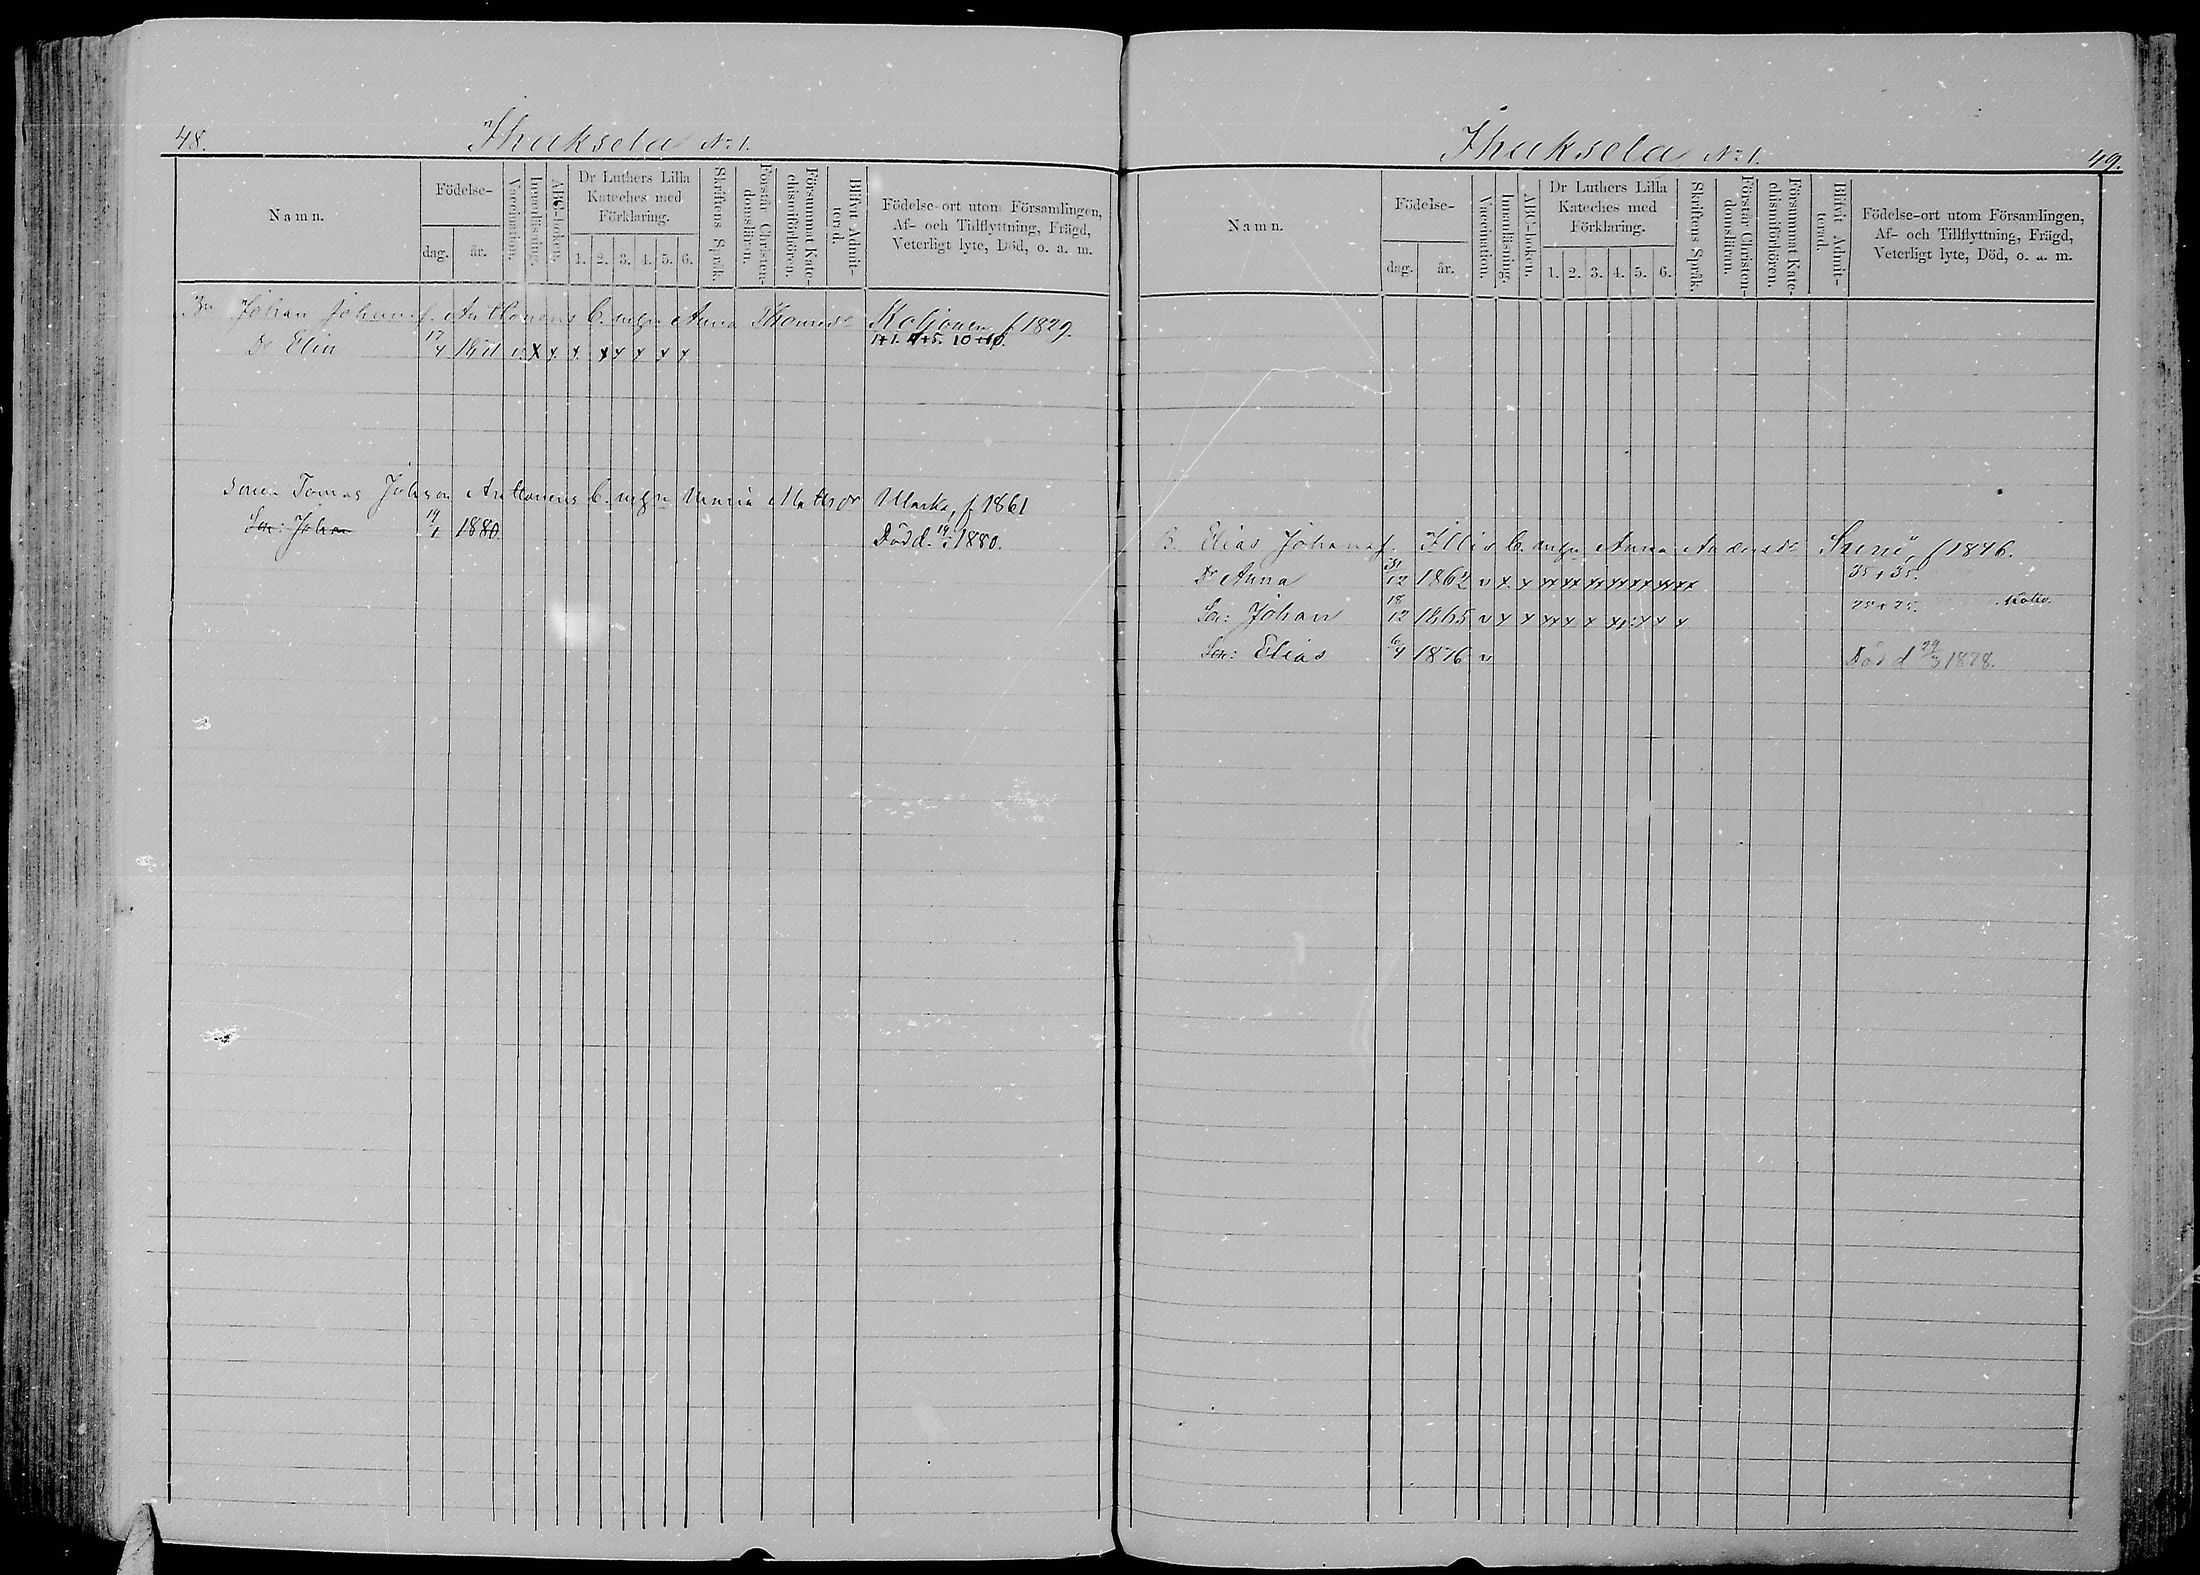 48. Ihaksela No 1.
Namn.
Födelse-
dag.
år.
Vaccination.
Innanläsning.
ABC-boken.
Dr Luthers Lilla
Kateches med
Förklaring.
1. 2. 3. 4. 5. 6.
Skriftens Språk.
Förstår Christen-
domsläran.
Försummat Kate-
chismiförhören.
Blifvit Admit-
terad.
Födelse-ort utom Församlingen,
Af- och Tillflyttning, Frägd,
Veterligt lyte, Död, o. a. m.
Johan Johansf. Anttonens b. m. Anna Thomasdr Koljonen, f 1829.
Dr Elin 17/4 v. x x x x x x x x
Sonen Tomas Johson Anttonens b. m. Maria Mattsdr Marka, f 1861
Son: Johan 19/1 1880 Död d. 1880.
Ihaksela No 1. 49.
Namn.
Födelse-
dag.
år.
Vaccination.
Innanläsning.
ABC-boken.
Dr Luthers Lilla
Kateches med
Förklaring.
1. 2. 3. 4. 5. 6.
Skriftens Språk.
Förstår Christen-
domsläran.
Försummat Kate-
chismiförhören.
Blifvit Admit-
terad.
Födelse-ort utom Församlingen,
Af- och Tillflyttning, Frägd,
Veterligt lyte, Död, o. a. m.
B. Elias Johansf. Illis b. m. Anna Andersdr f 1846.
Dr Anna 31/12 1862 v x x xx xx xx xx xx xx 35+35.
Son: Johan 18/12 1865 v x x xx x x xx x x
Son: Elias 6/4 1876 v Död d 29/3 1878.